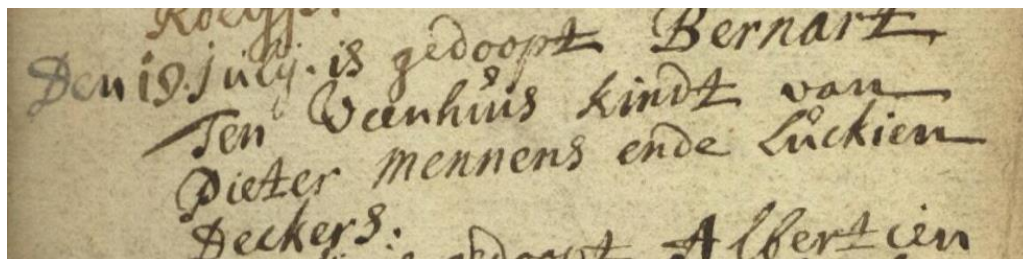 Den 19. Julij. is gedoopt Bernart
Ten Veenhuis kindt van
Pieter Mennens ende Luckien
Deckers.
gedoopt Albertien